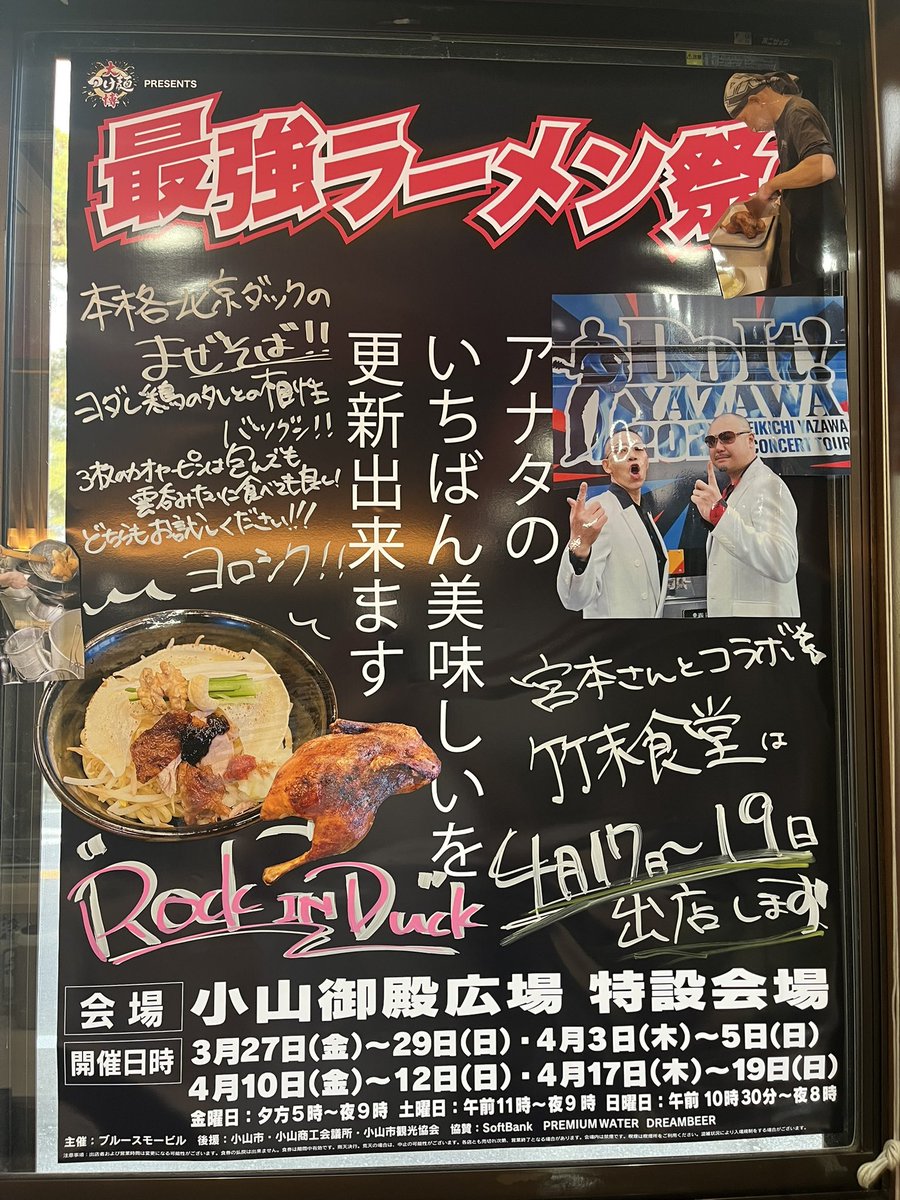 大つけ麺博
PRESENTS
最強ラーメン祭
本格北京ダックの
まぜそば!!
ヨダレ鶏のタレとの相性
バツグン!!
3枚のカオヤーピンは包んでも
雲呑みたいに食べても良し!
どちらもお試しください!!!
ヨロシク!!
アナタの
いちばん美味しいを
更新出来ます
Do It!
YAZAWA
EIKICHI YAZAWA
CONCERT TOUR
宮本さんとコラボ
竹末食堂は
4月17日〜19日
出店します
"Rock IN Duck"
会場 小山御殿広場 特設会場
開催日時 3月27日(金)〜29日(日)・4月3日(木)〜5日(日)
4月10日(金)〜12日(日)・4月17日(木)〜19日(日)
金曜日:夕方5時〜夜9時 土曜日:午前11時〜夜9時 日曜日:午前10時30分〜夜8時
主催:ブルースモービル 後援:小山市・小山商工会議所・小山市観光協会 協賛:SoftBank PREMIUM WATER DREAMBEER